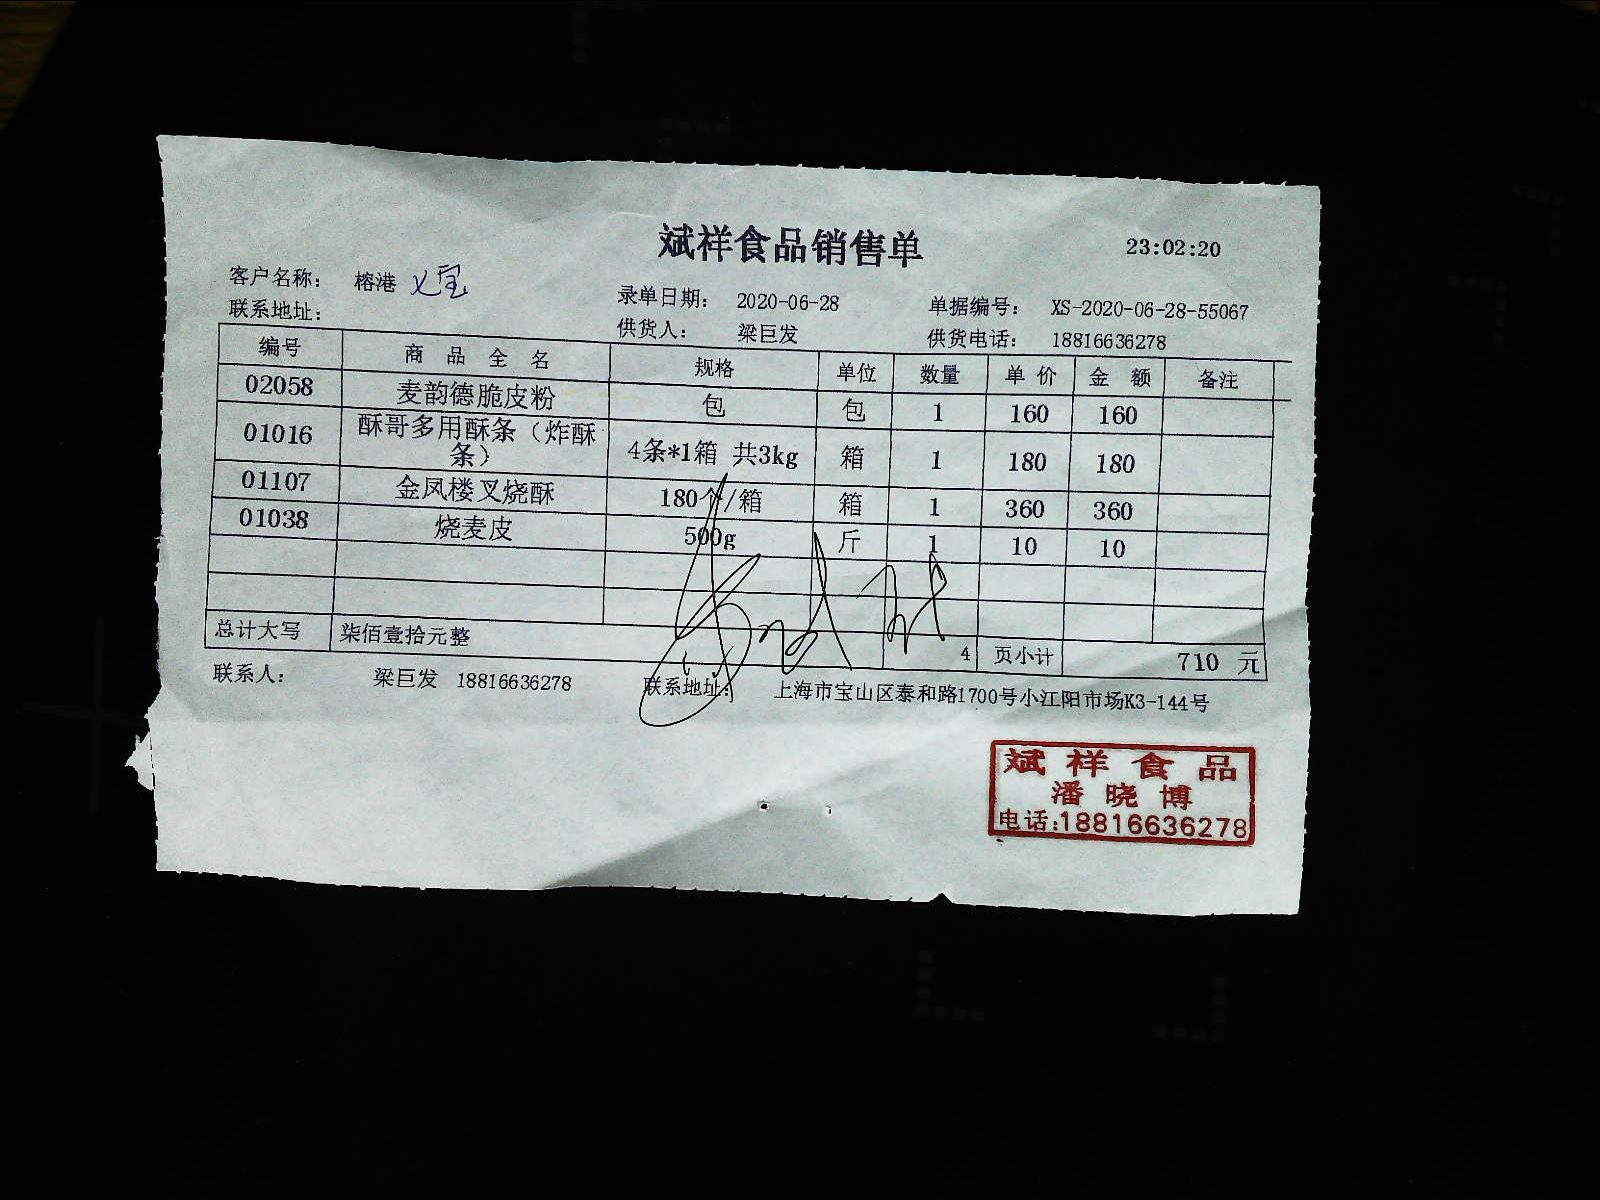 斌祥食品销售单 23:02:20
客户名称： 榕港 录单日期： 2020-06-28 单据编号： XS-2020-06-28-55067
联系地址： 供货人： 梁巨发 供货电话： 18816636278
编号 商品全名 规格 单位 数量 单价 金额 备注
02058 麦韵德脆皮粉 包 包 1 160 160
01016 酥哥多用酥条（炸酥条） 4条*1箱 共3kg 箱 1 180 180
01107 金凤楼叉烧酥 180个/箱 箱 1 360 360
01038 烧麦皮 500g 斤 1 10 10
总计大写 柒佰壹拾元整 4 页小计 710 元
联系人： 梁巨发 18816636278 联系地址： 上海市宝山区泰和路1700号小江阳市场K3-144号
斌祥食品
潘晓博
电话:18816636278